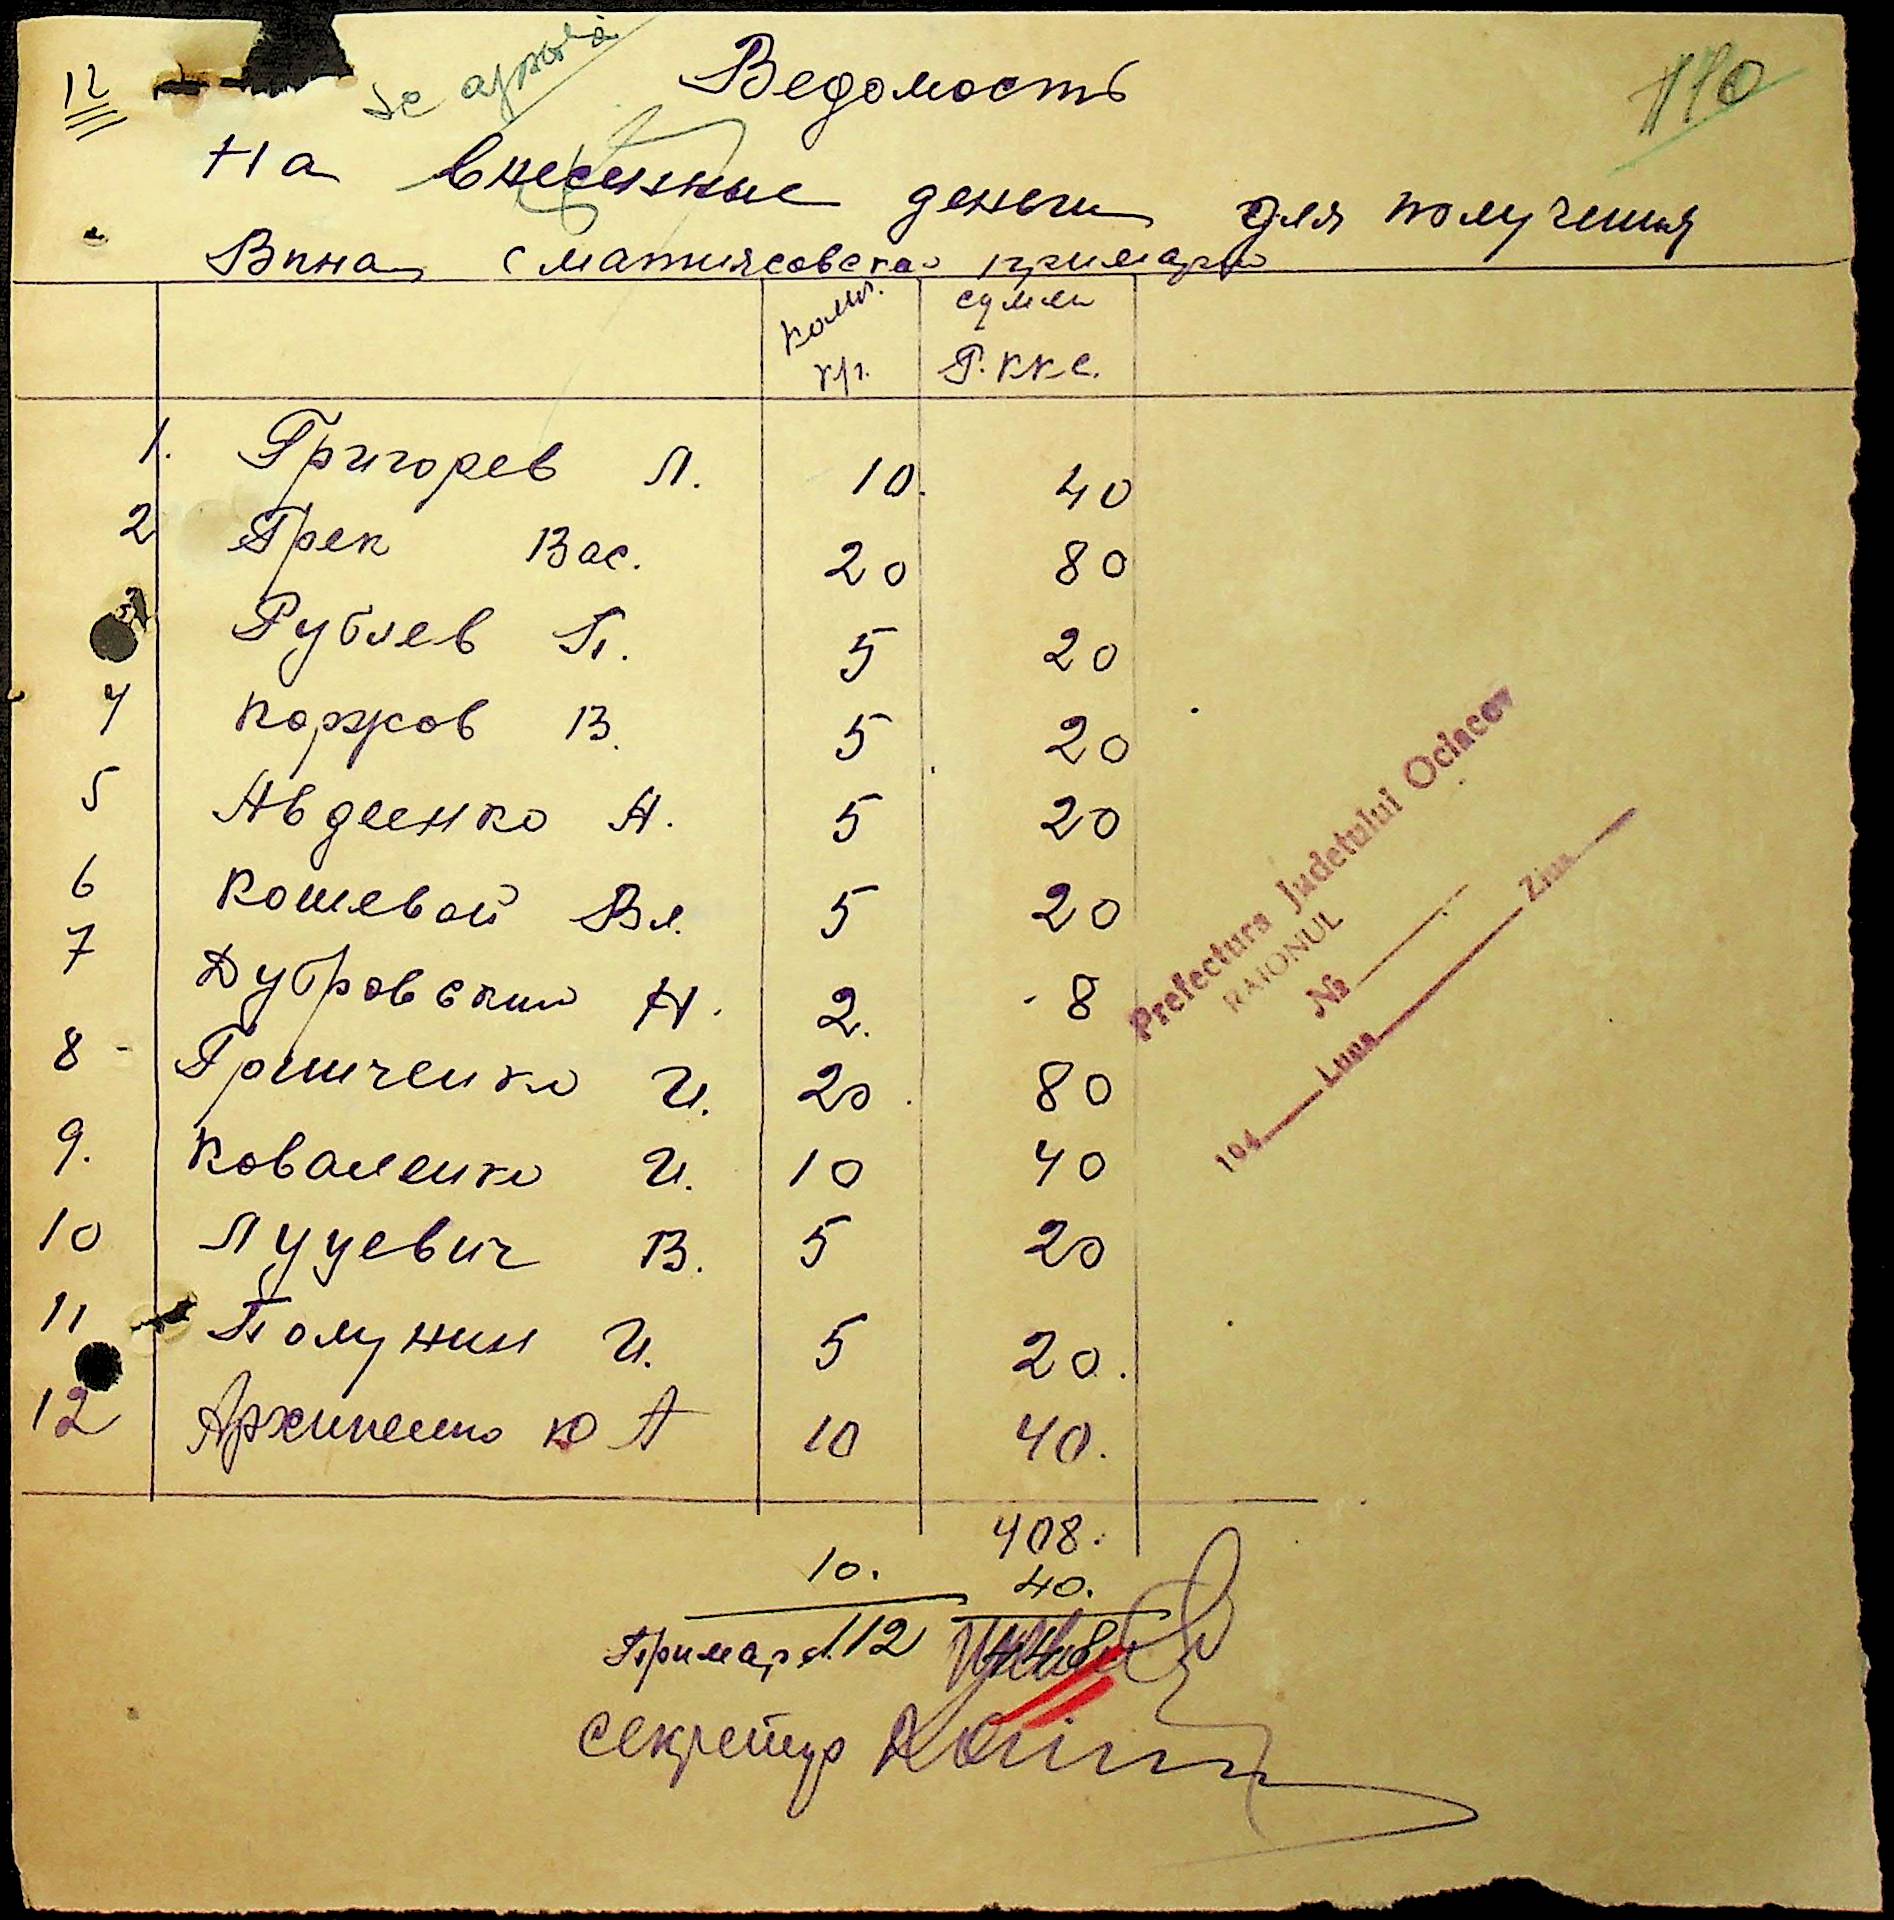 12
se aprobă
110
Ведомость
На внесенные деньги для получения
Вина с матиясовской примарии
колич. кр. сумма Р. ККС.
1. Григорев Л. 10. 40
2 Грек Вас. 20 80
3 Рублев П. 5 20
4 Коржов В. 5 20
5 Авдеенко А. 5 20
6 Кошевой Вл. 5 20
7 Дубровский Н. 2. 8
8 - Гришченко И. 20 80
9. Коваленко И. 10 40
10 Луцевич В. 5 20
11 Полунин И. 5 20.
12 Архипенко Ю А 10 40.
408.
10. 40.
Примарь 112 448
секретарь
Prefectura Judetului Ociacov
RAIONUL
№
194 Luna Ziua